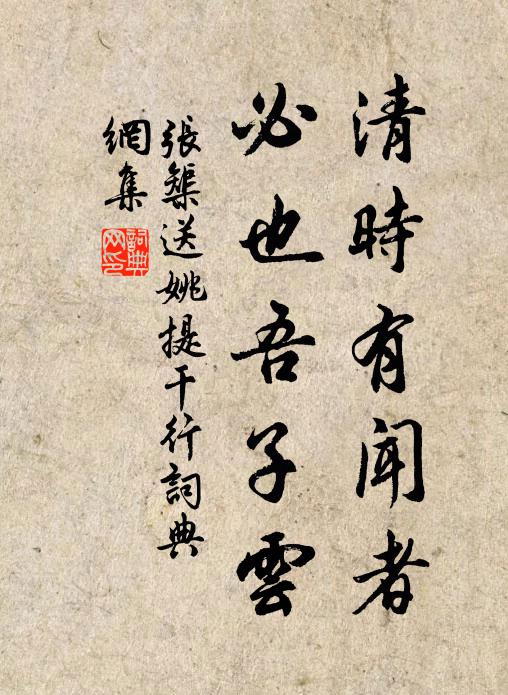 清時有聞者
必也吾子雲
張榘送姚提干行詞典
網集
詞典
网印